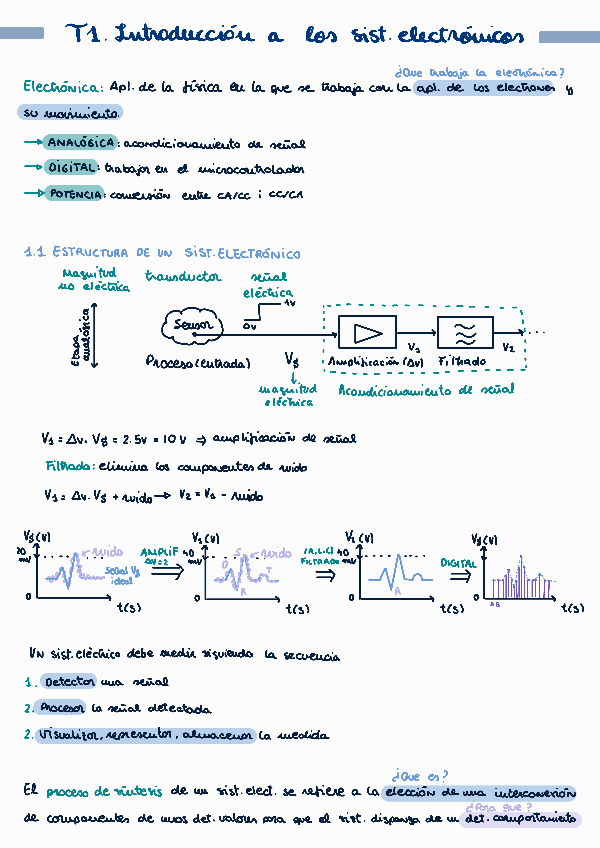 T1. Introducción a los sist. electrónicos
¿Que trabaja la electrónica?
Electrónica: Apl. de la física en la que se trabaja con la apl. de los electrones y
su movimiento.
→ ANALÓGICA: acondicionamiento de señal
→ DIGITAL: trabajar en el microcontrolador
→ POTENCIA: conversión entre CA/CC i CC/CA
1.1 ESTRUCTURA DE UN SIST. ELECTRÓNICO
Magnitud no eléctrica
transductor
señal eléctrica
Etapa analógica
Sensor
0v
1v
Proceso (entrada)
Vg
magnitud eléctrica
V1
V2
Amplificación (Δv)
Filtrado
Acondicionamiento de señal
V1 = Δv. Vg = 2.5v = 10V ⇒ amplificación de señal
Filtrado: elimina los componentes de ruido
V1 = Δv. Vg + ruido → V2 = V1 - ruido
Vg (V)
20 mV
ruido
señal Vg ideal
0
t(s)
AMPLIF
ΔV=2
V1 (V)
40 mV
Q
S
R
T
ruido
0
t(s)
(R,L,C)
FILTRADO
V1 (V)
40 mV
R
0
t(s)
DIGITAL
Vg (V)
0
AB
t(s)
Un sist. eléctrico debe medir siguiendo la secuencia
1. Detectar una señal
2. Procesar la señal detectada
2. Visualizar, representar, almacenar la medida
¿Que es?
El proceso de síntesis de un sist. elect. se refiere a la elección de una interconexión
¿Para que?
de componentes de unos det. valores para que el sist. disponga de un det. comportamiento